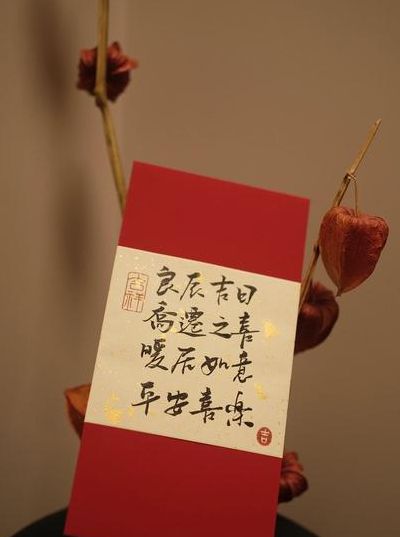 良辰吉日
喬遷之喜
暖居如意
平安喜樂
吉祥
吉